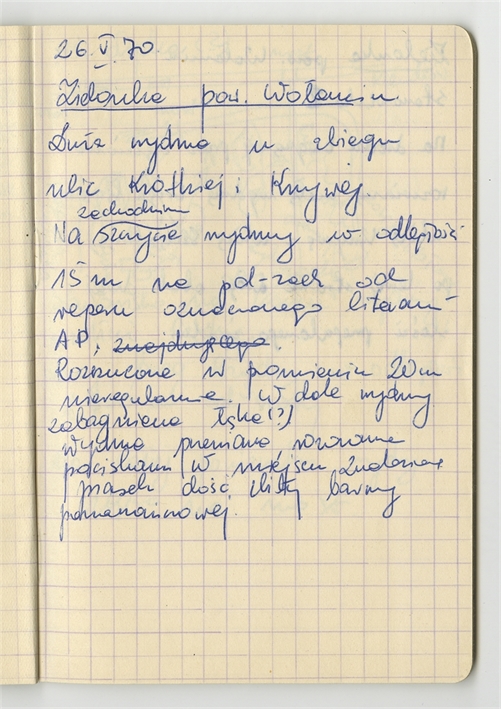 26.V.70.
Zielonka pow. Wołomin.
Duża wydma u zbiegu
ulic Krótkiej i Krzywej.
zachodnim
Na szczycie wydmy w odległości
15 m na pd-zach od
reperu oznaczonego literami
AP, znajdującego.
Rozrzucone w promieniu 20m
nieregularnie. W dole wydmy
zabagniona łąka (?)
wydma przeciano rozorana
pociskami w miejscu znalezisk
piasek dość żółty barwy
pomarańczowej.